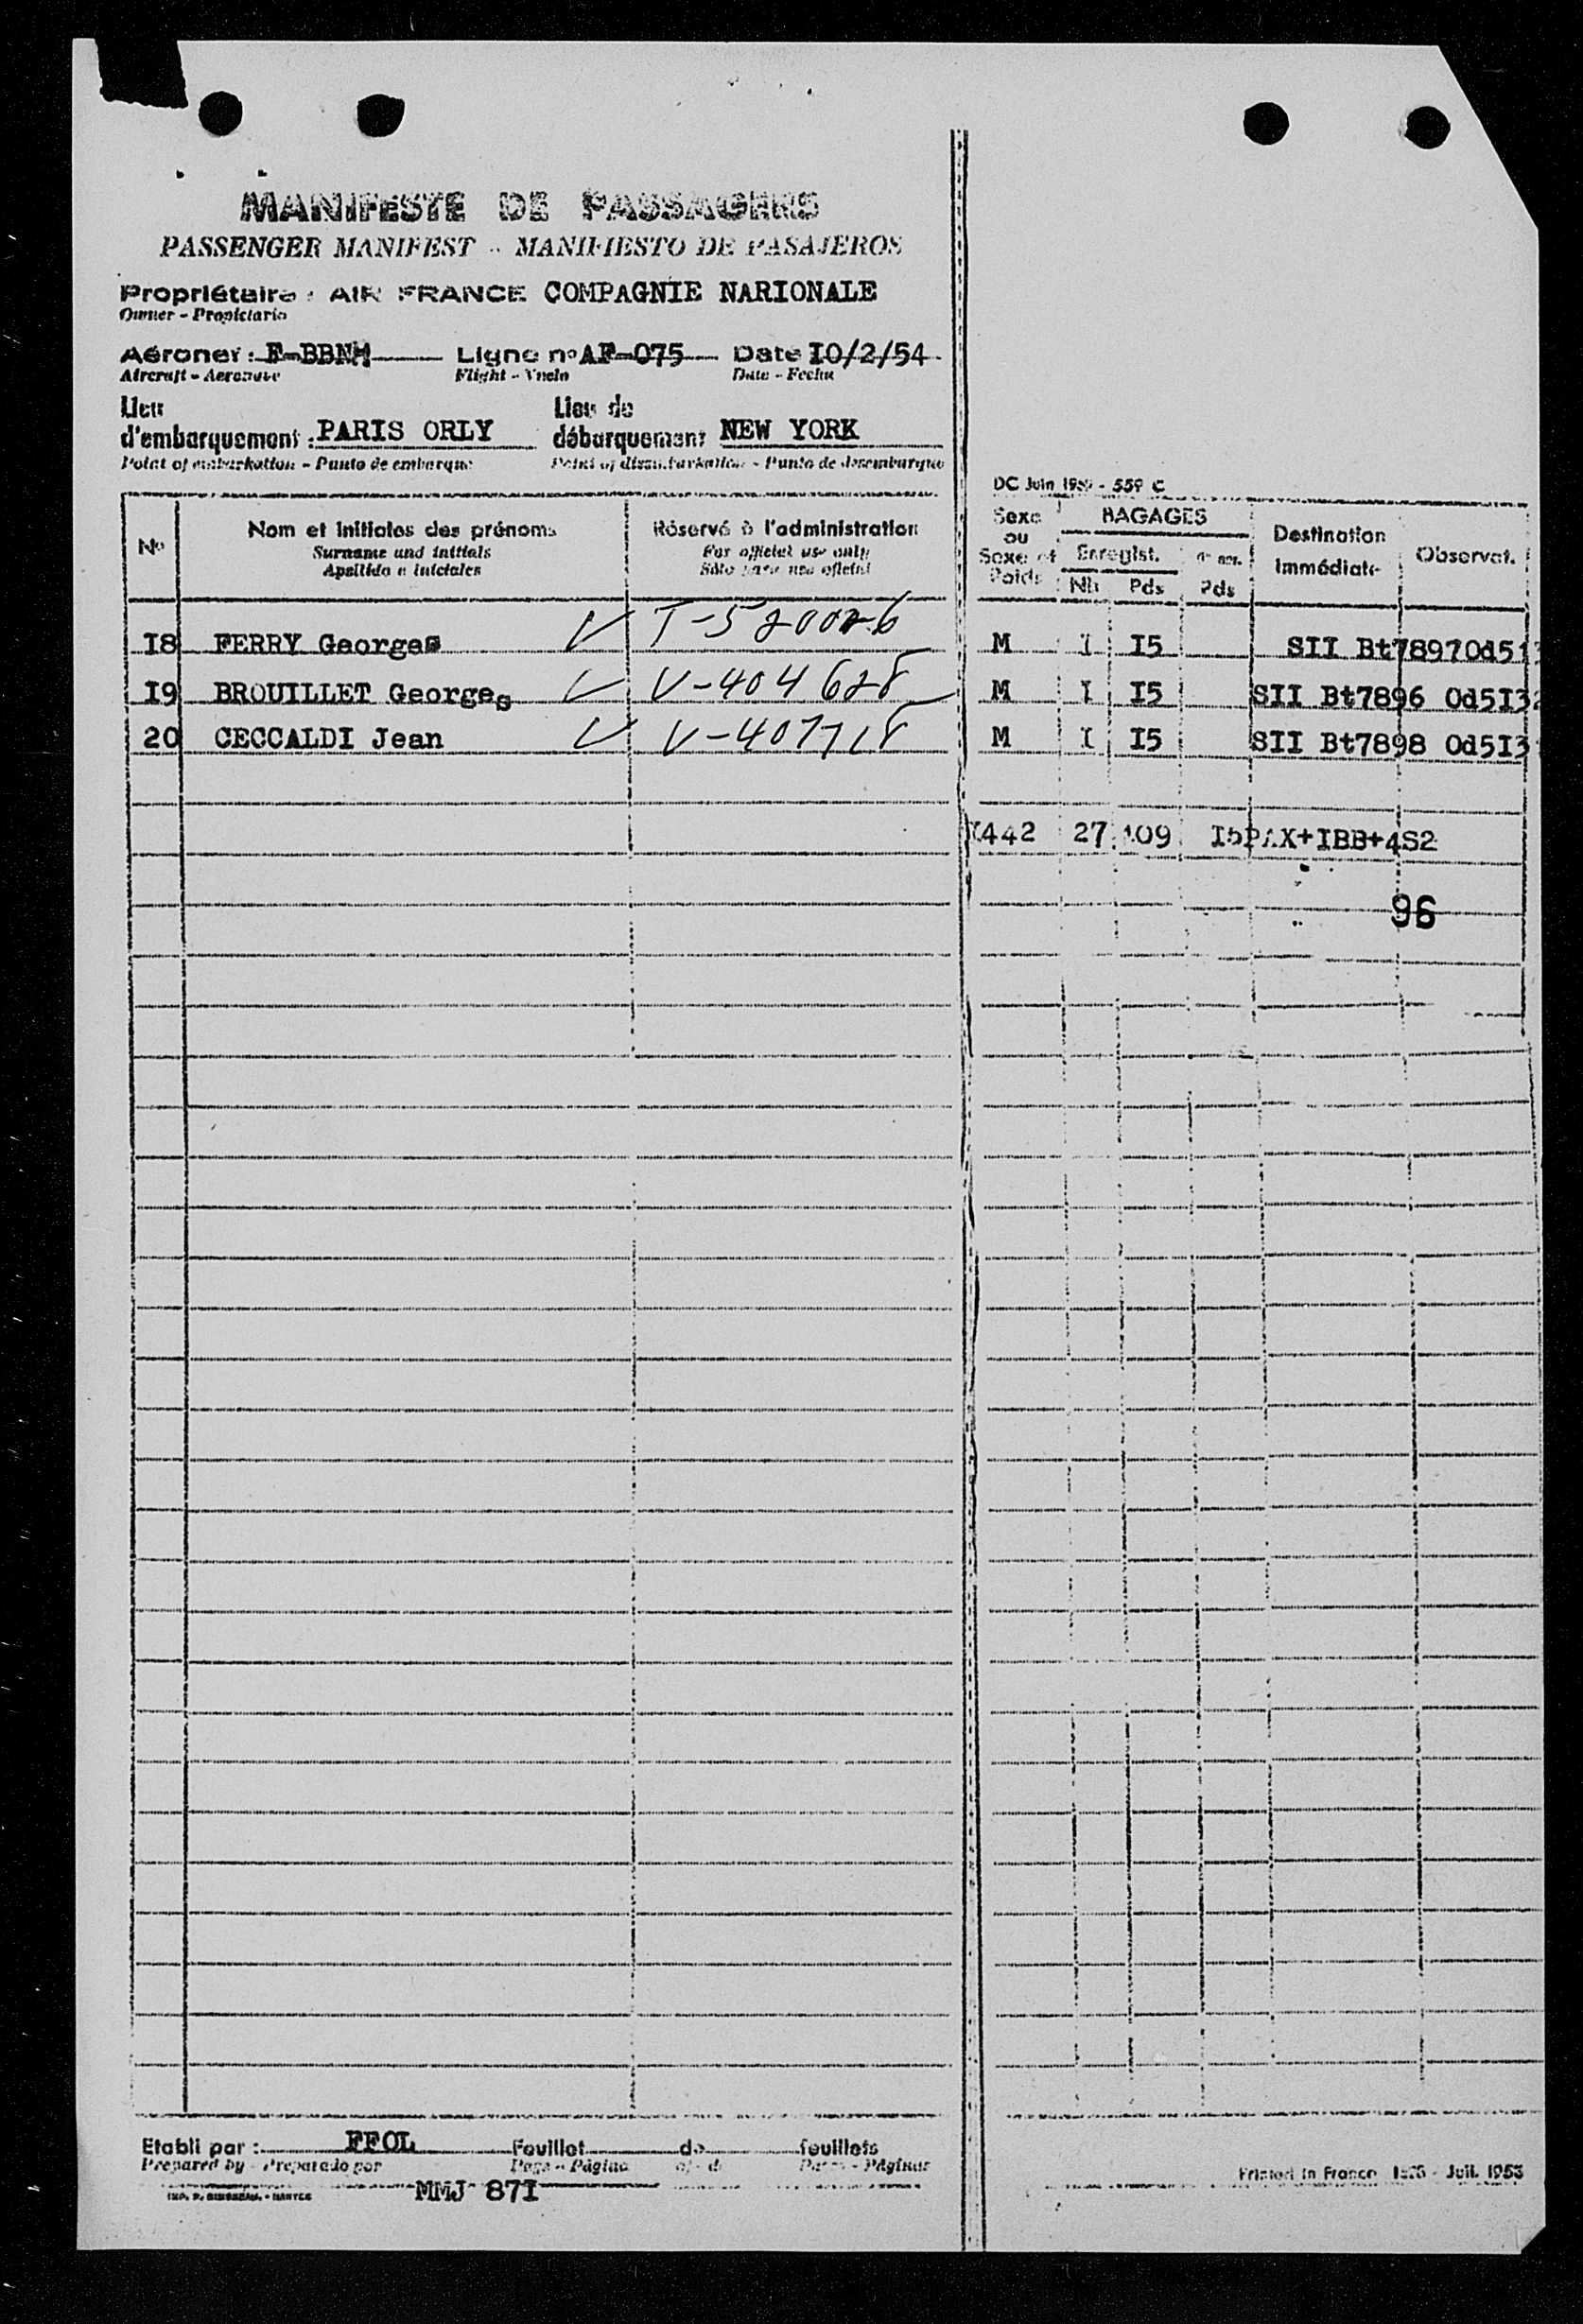 MANIFESTE DE PASSAGERS
PASSENGER MANIFEST - MANIFIESTO DE PASAJEROS
Propriétaire : AIR FRANCE COMPAGNIE NARIONALE
Owner - Propietario
Aéronef : F-BBNH Ligne n° AF-075 Date I0/2/54
Aircraft - Aeronave Flight - Vuelo Date - Fecha
Lieu d'embarquement : PARIS ORLY Lieu de débarquement NEW YORK
Point of embarkation - Punto de embarque Point of disembarkation - Punto de desembarque
DC Juin 195 - 559 C
N° Nom et initiales des prénoms Réservé à l'administration Sexe ou Sexe et Poids BAGAGES Enregist. Nb Pds Pds Destination Immédiate Observat.
Surname and initials For official use only
Apellido e iniciales Sólo para uso oficial
I8 FERRY Georges V T-520026 M I I5 SII Bt7897Od51
I9 BROUILLET Georges V V-404628 M I I5 SII Bt7896 Od5I32
20 CECCALDI Jean V V-407718 M I I5 SII Bt7898 Od5I3
I442 27 409 I5PAX+IBB+4S2
96
Etabli par : FFOL Feuillet de feuillets
Prepared by - Preparado por Page - Página of - de Pages - Páginas
MMJ 87I
Printed in France - Juil. 1953